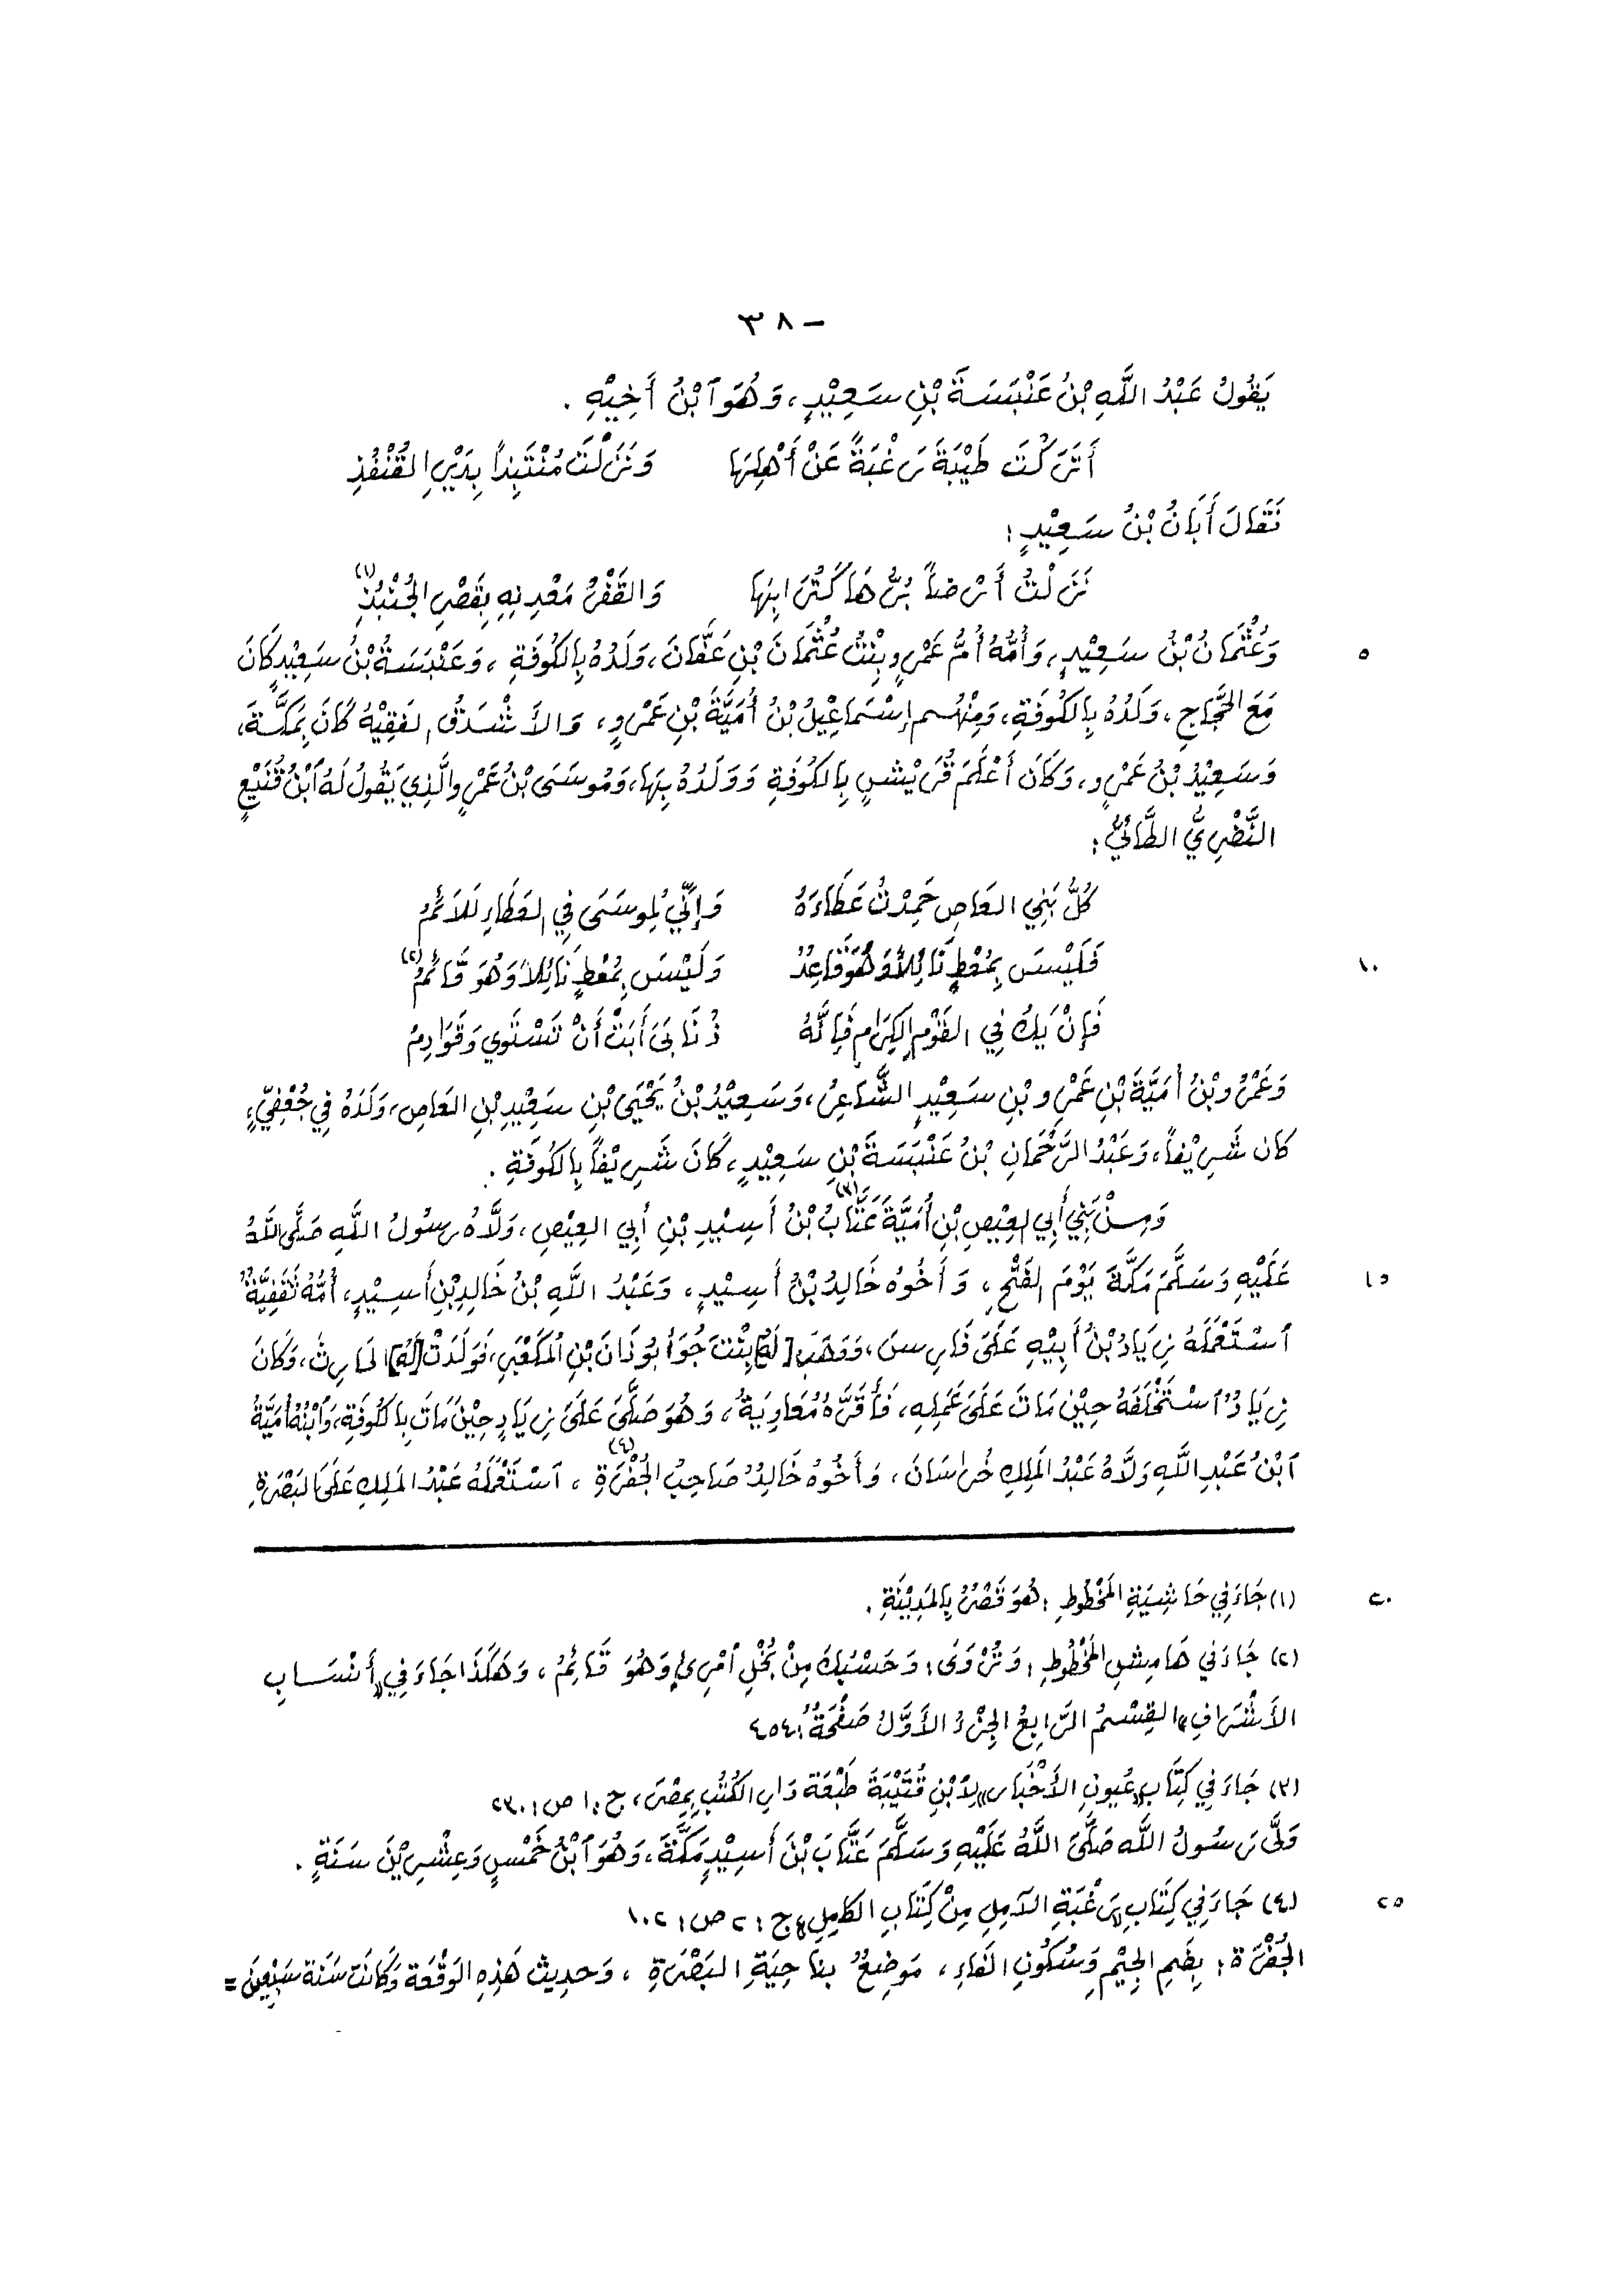 ٣٨ -
يَقُولُ عَبْدُ اللَّهِ بْنُ عَنْبَسَةَ بْنِ سَعِيْدٍ، وَهُوَ ٱبْنُ أَخِيْهِ .
أَتَرَكْتَ طَيْبَةَ رَغْبَةً عَنْ أَهْلِهَا وَنَزَلْتَ مُنْتَبِذاً بِدَيْرِ القُنْفُذِ
فَقَالَ أَبَانُ بْنُ سَعِيْدٍ :
نَزَلْتُ أَرْضاً بُرُّهَا كَتُرَابِهَا وَالفَقْرُ مَعْدِنِهِ بِقَصْرِ الجُنْبُذِ (١)
٥ وَعُثْمَانُ بْنُ سَعِيْدٍ، وَأُمُّهُ أُمُّ عَمْرٍو بِنْتُ عُثْمَانَ بْنِ عَفَّانَ، وَلَدُهُ بِالكُوفَةِ ، وَعَنْبَسَةُ بْنُ سَعِيْدٍ كَانَ
مَعَ الحَجَّاجِ ، وَلَدُهُ بِالكُوفَةِ، وَمِنْهُم إِسْمَاعِيْلُ بْنُ أُمَيَّةَ بْنِ عَمْرٍو، وَالأَشْدَقُ الفَقِيْهُ كَانَ بِمَكَّةَ،
وَسَعِيْدُ بْنُ عَمْرٍو، وَكَانَ أَعْلَمَ قُرَيْشٍ بِالكُوفَةِ وَوَلَدُهُ بِهَا، وَمُوسَى بْنُ عَمْرٍو الَّذِي يَقُولُ لَهُ ٱبْنُ قُنَيْعٍ
النَّضْرِيُّ الطَّائِيُّ :
كُلُّ بَنِي العَاصِ حَمِدْتُ عَطَاءَهُ وَإِنِّي لِمُوسَى فِي العَطَاءِ لَلاَئِمُ
١٠ فَلَيْسَ بِمُعْطٍ نَائِلاً وَهُوَ قَاعِدٌ وَلَيْسَ بِمُعْطٍ نَائِلاً وَهُوَ قَائِمُ (٢)
فَإِنْ يَكُ فِي القَوْمِ الكِرَامِ فَإِنَّهُ ذُنَابَى أَبَتْ أَنْ تَسْتَوِي وَقَوَادِمُ
وَعَمْرُو بْنُ أُمَيَّةَ بْنِ عَمْرِو بْنِ سَعِيْدٍ الشَّاعِرُ، وَسَعِيْدُ بْنُ يَحْيَى بْنِ سَعِيْدِ بْنِ العَاصِ، وَلَدَهُ فِي جُعْفِيٍّ،
كان شَرِيْفاً، وَعَبْدُ الرَّحْمَانِ بْنُ عَنْبَسَةَ بْنِ سَعِيْدٍ، كَانَ شَرِيْفاً بِالكُوفَةِ .
وَمِنْ بَنِي أَبِي العِيْصِ بْنِ أُمَيَّةَ عَتَّابُ (٣) بْنُ أَسِيْدِ بْنِ أَبِي العِيْصِ، وَلاَّهُ رسُولُ اللَّهِ صَلَّى اللَّهُ
١٥ عَلَيْهِ وَسَلَّمَ مَكَّةَ يَوْمَ الفَتْحِ ، وَأَخُوهُ خَالِدُ بْنُ أَسِيْدٍ ، وَعَبْدُ اللَّهِ بْنُ خَالِدِ بْنِ أَسِيْدٍ، أُمُّهُ ثَقَفِيَّةٌ
ٱسْتَعْمَلَهُ زِيَادُ بْنُ أَبِيْهِ عَلَى فَارِسَ، وَوَهَبَ [لَهُ] بِنْتَ جُوَا بُوذَانَ بْنِ المُكَعْبَرِ، فَوَلَدَتْ [لَهُ] الحَارِثَ، وَكَانَ
زِيَادُ ٱسْتَخْلَفَهُ حِيْنَ مَاتَ عَلَى عَمَلِهِ، فَأَقَرَّهُ مُعَاوِيَةُ، وَهُوَ صَلَّى عَلَى زِيَادٍ حِيْنَ مَاتَ بِالكُوفَةِ، وَٱبْنُهُ أُمَيَّةُ
ٱبْنُ عَبْدِ اللَّهِ وَلاَّهُ عَبْدُ المَلِكِ خُرَاسَانَ، وَأَخُوهُ خَالِدُ صَاحِبُ الجُفْرَةِ (٤) ، ٱسْتَعْمَلَهُ عَبْدُ المَلِكِ عَلَى البَصْرَةِ،
٢٠ (١) جَاءَ فِي حَاشِيَةِ المَخْطُوطِ : هُوَ قَصْرٌ بِالمَدِيْنَةِ .
(٢) جَاءَ فِي هَامِشِ المَخْطُوطِ : وَتُرْوَى : وَحَسْبُكَ مِنْ بُخْلِ ٱمْرِئٍ وَهُوَ قَائِمُ ، وَهَكَذَا جَاءَ فِي «أَنْسَابِ
الأَشْرَافِ» القِسْمُ الرَّابِعُ الجُزْءُ الأَوَّلُ صَفْحَةٌ : ٤٥٤
(٣) جَاءَ فِي كِتَابِ «عُيونِ الأَخْبَارِ» لِٱبْنِ قُتَيْبَةَ طَبْعَة دَارِ الكُتُبِ بِمِصْرَ، ج : ١ ص : ٢٣٠
وَلَّى رَسُولُ اللَّه صَلَّى اللَّهُ عَلَيْهِ وَسَلَّمَ عَتَّابَ بْنَ أَسِيْدٍ مَكَّةَ، وَهُوَ ٱبْنُ خَمْسٍ وَعِشْرِيْنَ سَنَةٍ .
٢٥ (٤) جَاءَ فِي كِتَابِ «رَغْبَةِ الآمِلِ مِنْ كِتَابِ الكامِلِ» ج : ٢ ص : ١٠٢
الجُفْرَة : بِضَمِ الجِيْمِ وَسُكُونِ الفَاءِ ، مَوضِعٌ بناحِيَةِ البَصْرَةِ ، وَحدِيث هَذِهِ الوَقْعَة وَكَانَت سَنَة سَبْعِينَ =